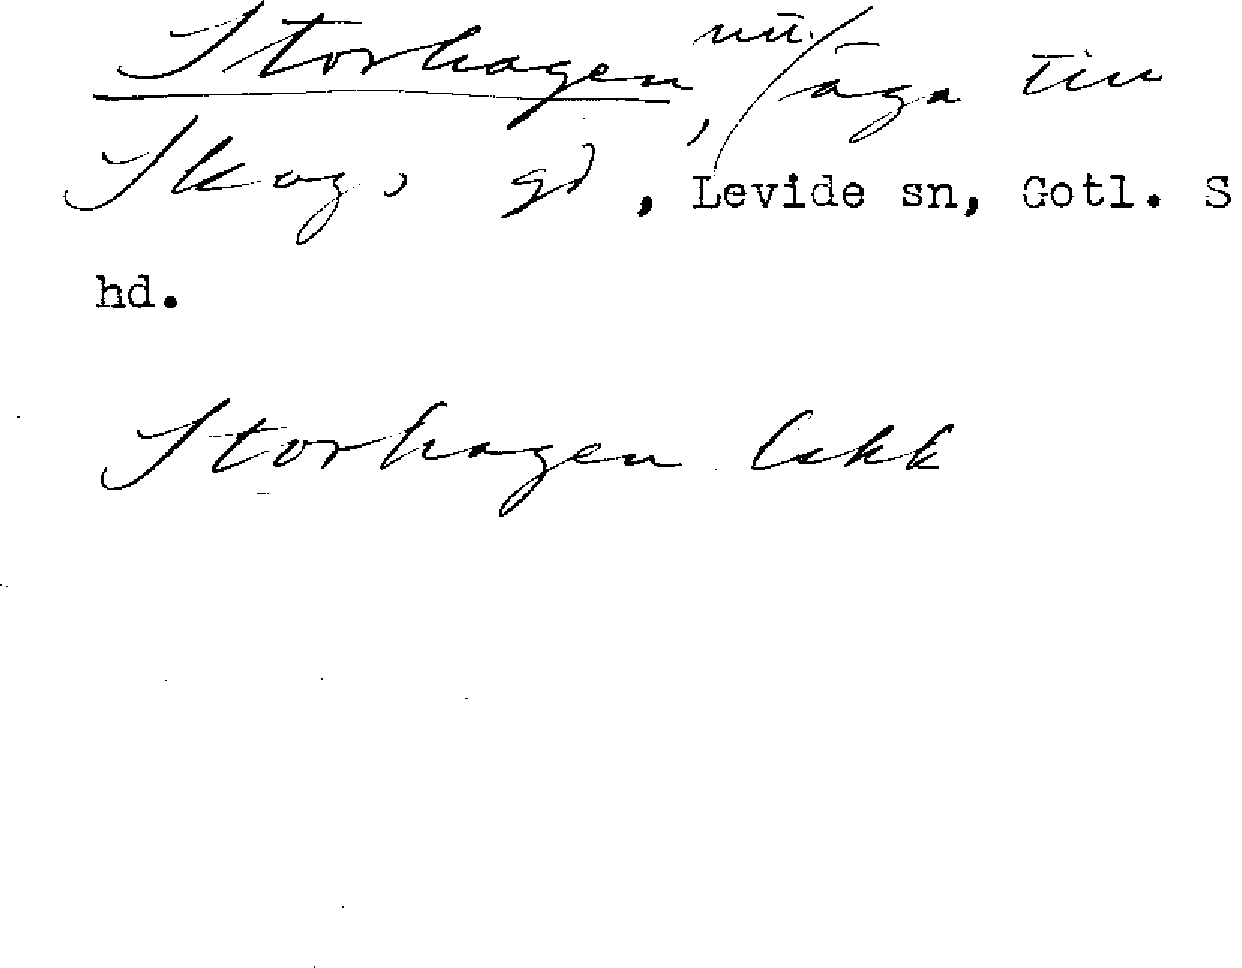 Storhagen, nu./äga till
Skogs gd, Levide sn, Gotl. S
hd.
Storhagen Lekk